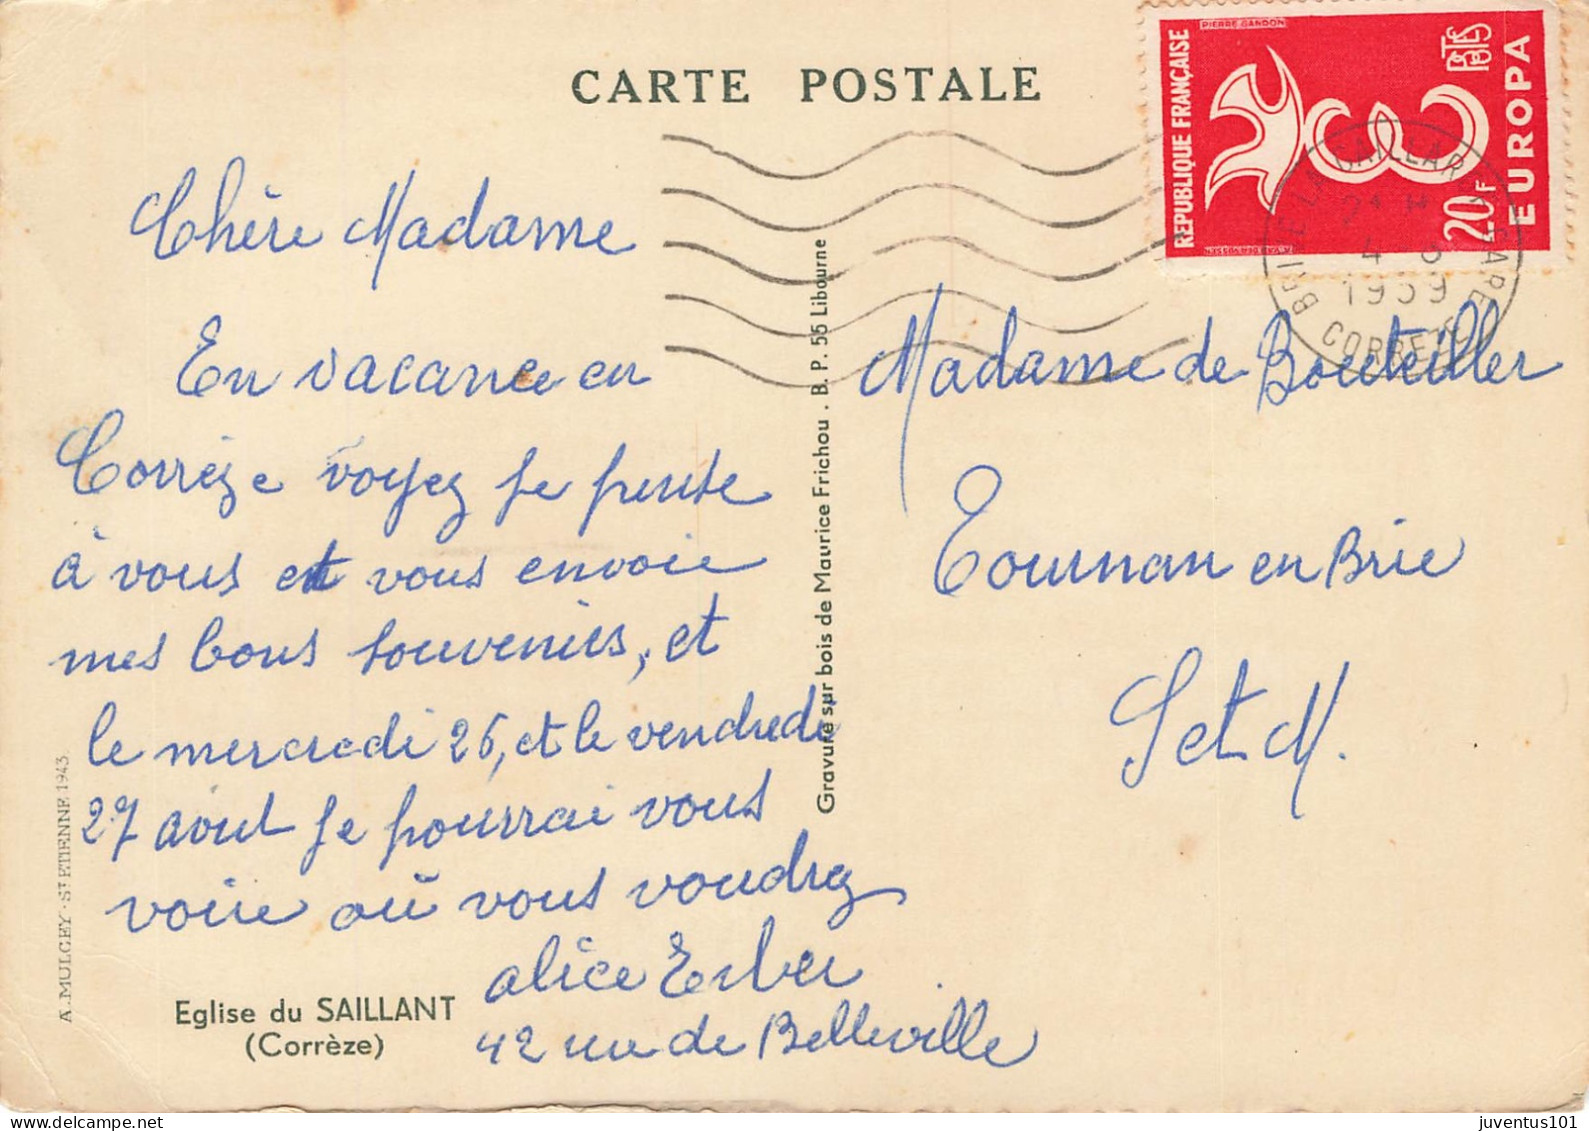 CARTE POSTALE
PIERRE GANDON
REPUBLIQUE FRANÇAISE
POSTES
20F
EUROPA
BRIVE LA GAILLARDE GARE
4 8
1959
CORREZE
Chère Madame
En vacance en
Corrèze voyez je pense
à vous et vous envoie
mes bons souvenirs, et
le mercredi 26, et le vendredi
27 aout je pourrai vous
voir où vous voudrez
alice Erber
42 rue de Belleville
Madame de Bouteiller
Tournan en Brie
S et M.
Gravure sur bois de Maurice Frichou . B. P. 55 Libourne
A. MULCEY - ST ETIENNE 1943
Eglise du SAILLANT
(Corrèze)
juventus101